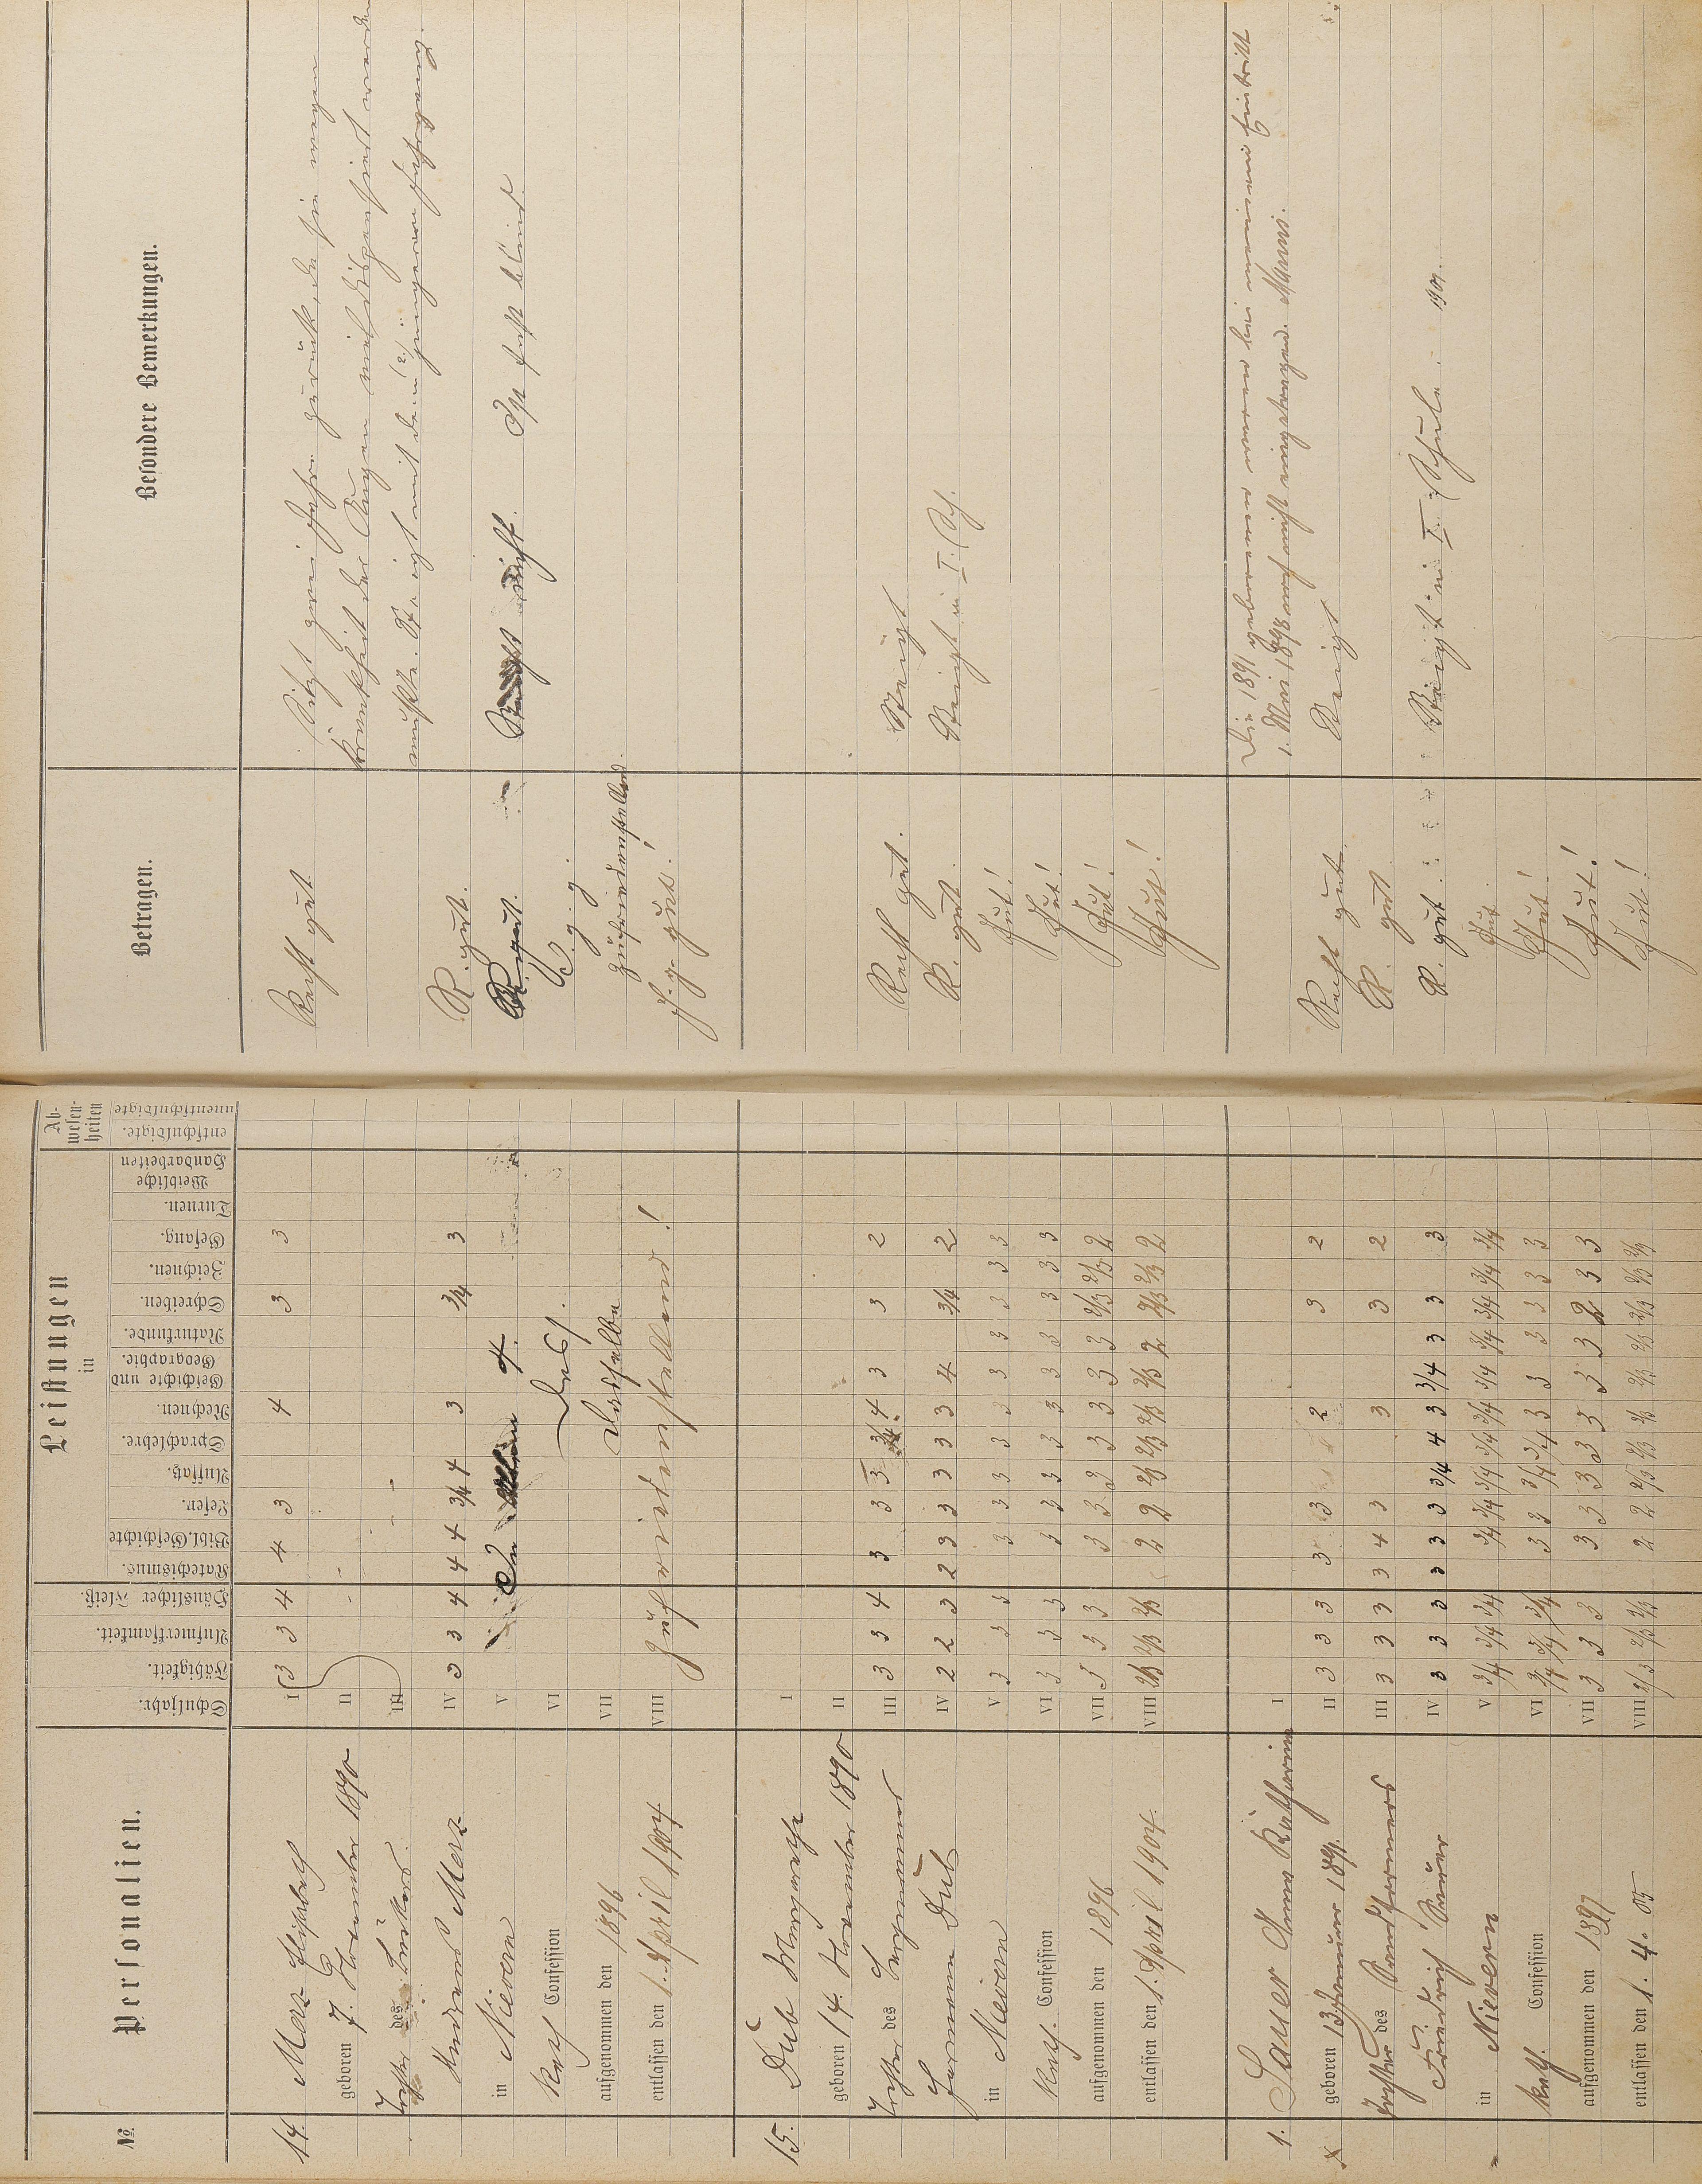 No.
Personalien.
Schuljahr.
Fähigkeit.
Aufmerksamkeit.
Häuslicher Fleiß.
Leistungen
in
Katechismus.
Bibl. Geschichte
Lesen.
Aufsatz.
Sprachlehre.
Rechnen.
Geschichte und
Geographie.
Naturkunde.
Schreiben.
Zeichnen.
Gesang.
Turnen.
Weibliche
Handarbeiten
Ab-
wesen-
heiten
entschuldigte.
unentschuldigte
Betragen.
Besondere Bemerkungen.
14. Merz Elisabeth
geboren 7. November 1890
Tochter des
Andreas Merz
in Nievern
Kath Confession
aufgenommen den 1896
entlassen den 1. April 1904
I 3 3 4 4 3 4 3 3
II
III
IV 3 3 4 4 4 3/4 4 3 3/4 3
V 4.
VI Dass.
VII Dasselbe
VIII Zufriedenstellend!
Recht gut
R. gut.
R. gut.
S. g. g.
zufriedenstellend
S. g. gut!
Sitzt zwei Jahre zurück, da sie wegen
Krankheit der Augen viel dispensiert werden
mußte. Steigt mit dem (2.) jüngeren Jahrgang.
Steigt nicht. Ist fast blind.
15. Düb Margarethe
geboren 14. November 1890
Tochter des
Hermann Düb
in Nievern
Kath. Confession
aufgenommen den 1896
entlassen den 1. April 1904.
I
II
III 3 3 4 3 3 3 3/4 4 3 3 2
IV 2 2 3 2 3 3 3 3 3 4 3/4 2
V 3 3 3 3 3 3 3 3 3 3 3 3 3
VI 3 3 3 3 3 3 3 3 3 3 3 3 3
VII 3 3 3 3 3 3 3 3 3 3 2/3 2/3 2
VIII 2/3 2/3 2/3 2 2 2/3 2/3 2/3 2/3 2 2/3 2/3 2
Recht gut.
R. gut.
Gut!
Gut!
Gut!
Gut!
Steigt
Steigt in I. Sch.
1. Sauer Anna Katharina
geboren 13 Januar 1891.
Tochter des
Friedrich Sauer
in Nievern
kath. Confession
aufgenommen den 1897
entlassen den 1. 4. 05
I
II 3 3 3 3 3 2 3 2
III 3 3 3 3 4 3 3 3 2
IV 3 3 3 3 3 3 3/4 4 3 3/4 3 3 3
V 3/4 3/4 3/4 3/4 3/4 3/4 3/4 3/4 3/4 3/4 3/4 3/4 3/4
VI 3/4 3/4 3/4 3 3 3/4 3/4 3 3 3 3 3 3
VII 3 3 3 3 3 3 3 3 3 3 2 3 3
VIII 2/3 2/3 2/3 2 2 2/3 2/3 2/3 2/3 2/3 2/3 2/3 2/3
Recht gut
R. gut
R. gut
Gut.
Gut!
Gut!
Gut!
Die 1891 geborenen waren bei meinem Eintritt
1. Mai 1898 noch nicht eingetragen.
Steigt
Steigt in I. Schule. 1901.